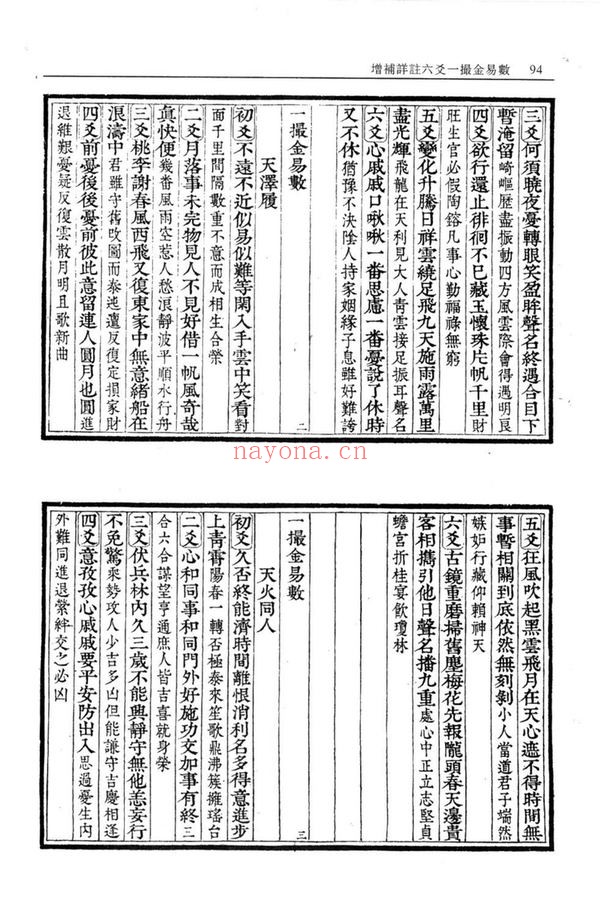 增補詳註六爻一撮金易數 94
三爻何須曉夜憂轉眼笑盈眸聲名終遇合目下
暫淹留崎嶇歷盡振動四方風雲際會得遇明良
四爻欲行還止徘徊不已藏玉懷珠片帆千里財
旺生官必假陶鎔凡事心勤福祿無窮
五爻變化升騰日祥雲繞足飛九天施雨露萬里
盡光輝飛龍在天利見大人青雲接足振耳聲名
六爻心戚戚口啾啾一番思慮一番憂說了休時
又不休猶豫不決陰人持家姻緣子息雖好難誇
一撮金易數 二
天澤履
初爻不遠不近似易似難等閑入手雲中笑看對
面千里間隔數重不意而成相生合榮
二爻月落事未完物見人不見好借一帆風奇哉
真快便幾番風雨空惹人愁浪靜波平順水行舟
三爻桃李謝春風西飛又復東家中無意緒船在
浪濤中君雖守舊改圖而泰迍邅反復定損家財
四爻前憂後後憂前彼此意留連人圓月也圓進
退維艱憂疑反復雲散月明且歌新曲
nayona.cn
五爻狂風吹起黑雲飛月在天心遮不得時間無
事暫相關到底依然無刻剝小人當道君子端然
嫉妒行藏仰賴神天
六爻古鏡重磨掃舊塵梅花先報隴頭春天邊貴
客相攜引他日聲名播九重處心中正立志堅貞
蟾宮折桂宴飲瓊林
一撮金易數 三
天火同人
初爻久否終能濟時間離恨消利名多得意進步
上青霄陽春一轉否極泰來笙歌鼎沸簇擁瑤台
二爻心和同事和同門外好施功文加事有終三
合六合謀望亨通庶人皆吉喜就身榮
三爻伏兵林內久三歲不能興靜守無他恙妄行
不免驚乘勢攻人少吉多凶但能謙守吉慶相逢
四爻意孜孜心戚戚要平安防出入思過憂生內
外難同進退縈絆交之必凶